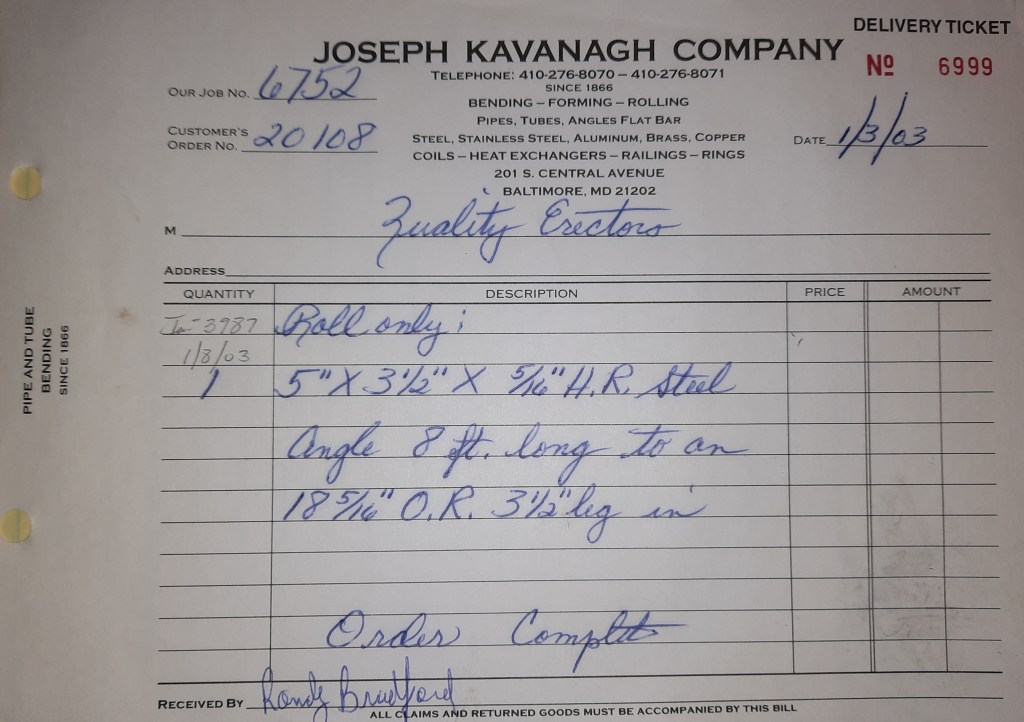 DELIVERY TICKET
JOSEPH KAVANAGH COMPANY
Nº 6999
TELEPHONE: 410-276-8070 – 410-276-8071
SINCE 1866
OUR JOB NO. 6752
BENDING – FORMING – ROLLING
PIPES, TUBES, ANGLES FLAT BAR
CUSTOMER'S
ORDER NO. 20108
STEEL, STAINLESS STEEL, ALUMINUM, BRASS, COPPER
DATE 1/3/03
COILS – HEAT EXCHANGERS – RAILINGS – RINGS
201 S. CENTRAL AVENUE
BALTIMORE, MD 21202
M Quality Erectors
ADDRESS
QUANTITY DESCRIPTION PRICE AMOUNT
3987 Roll only;
1/8/03
1 5" X 3 1/2" X 5/16" H.R. Steel
Angle 8 ft. long to an
18 5/16" O.R. 3 1/2" leg in
Order Complete
RECEIVED BY Randy Bradford
ALL CLAIMS AND RETURNED GOODS MUST BE ACCOMPANIED BY THIS BILL
PIPE AND TUBE
BENDING
SINCE 1866